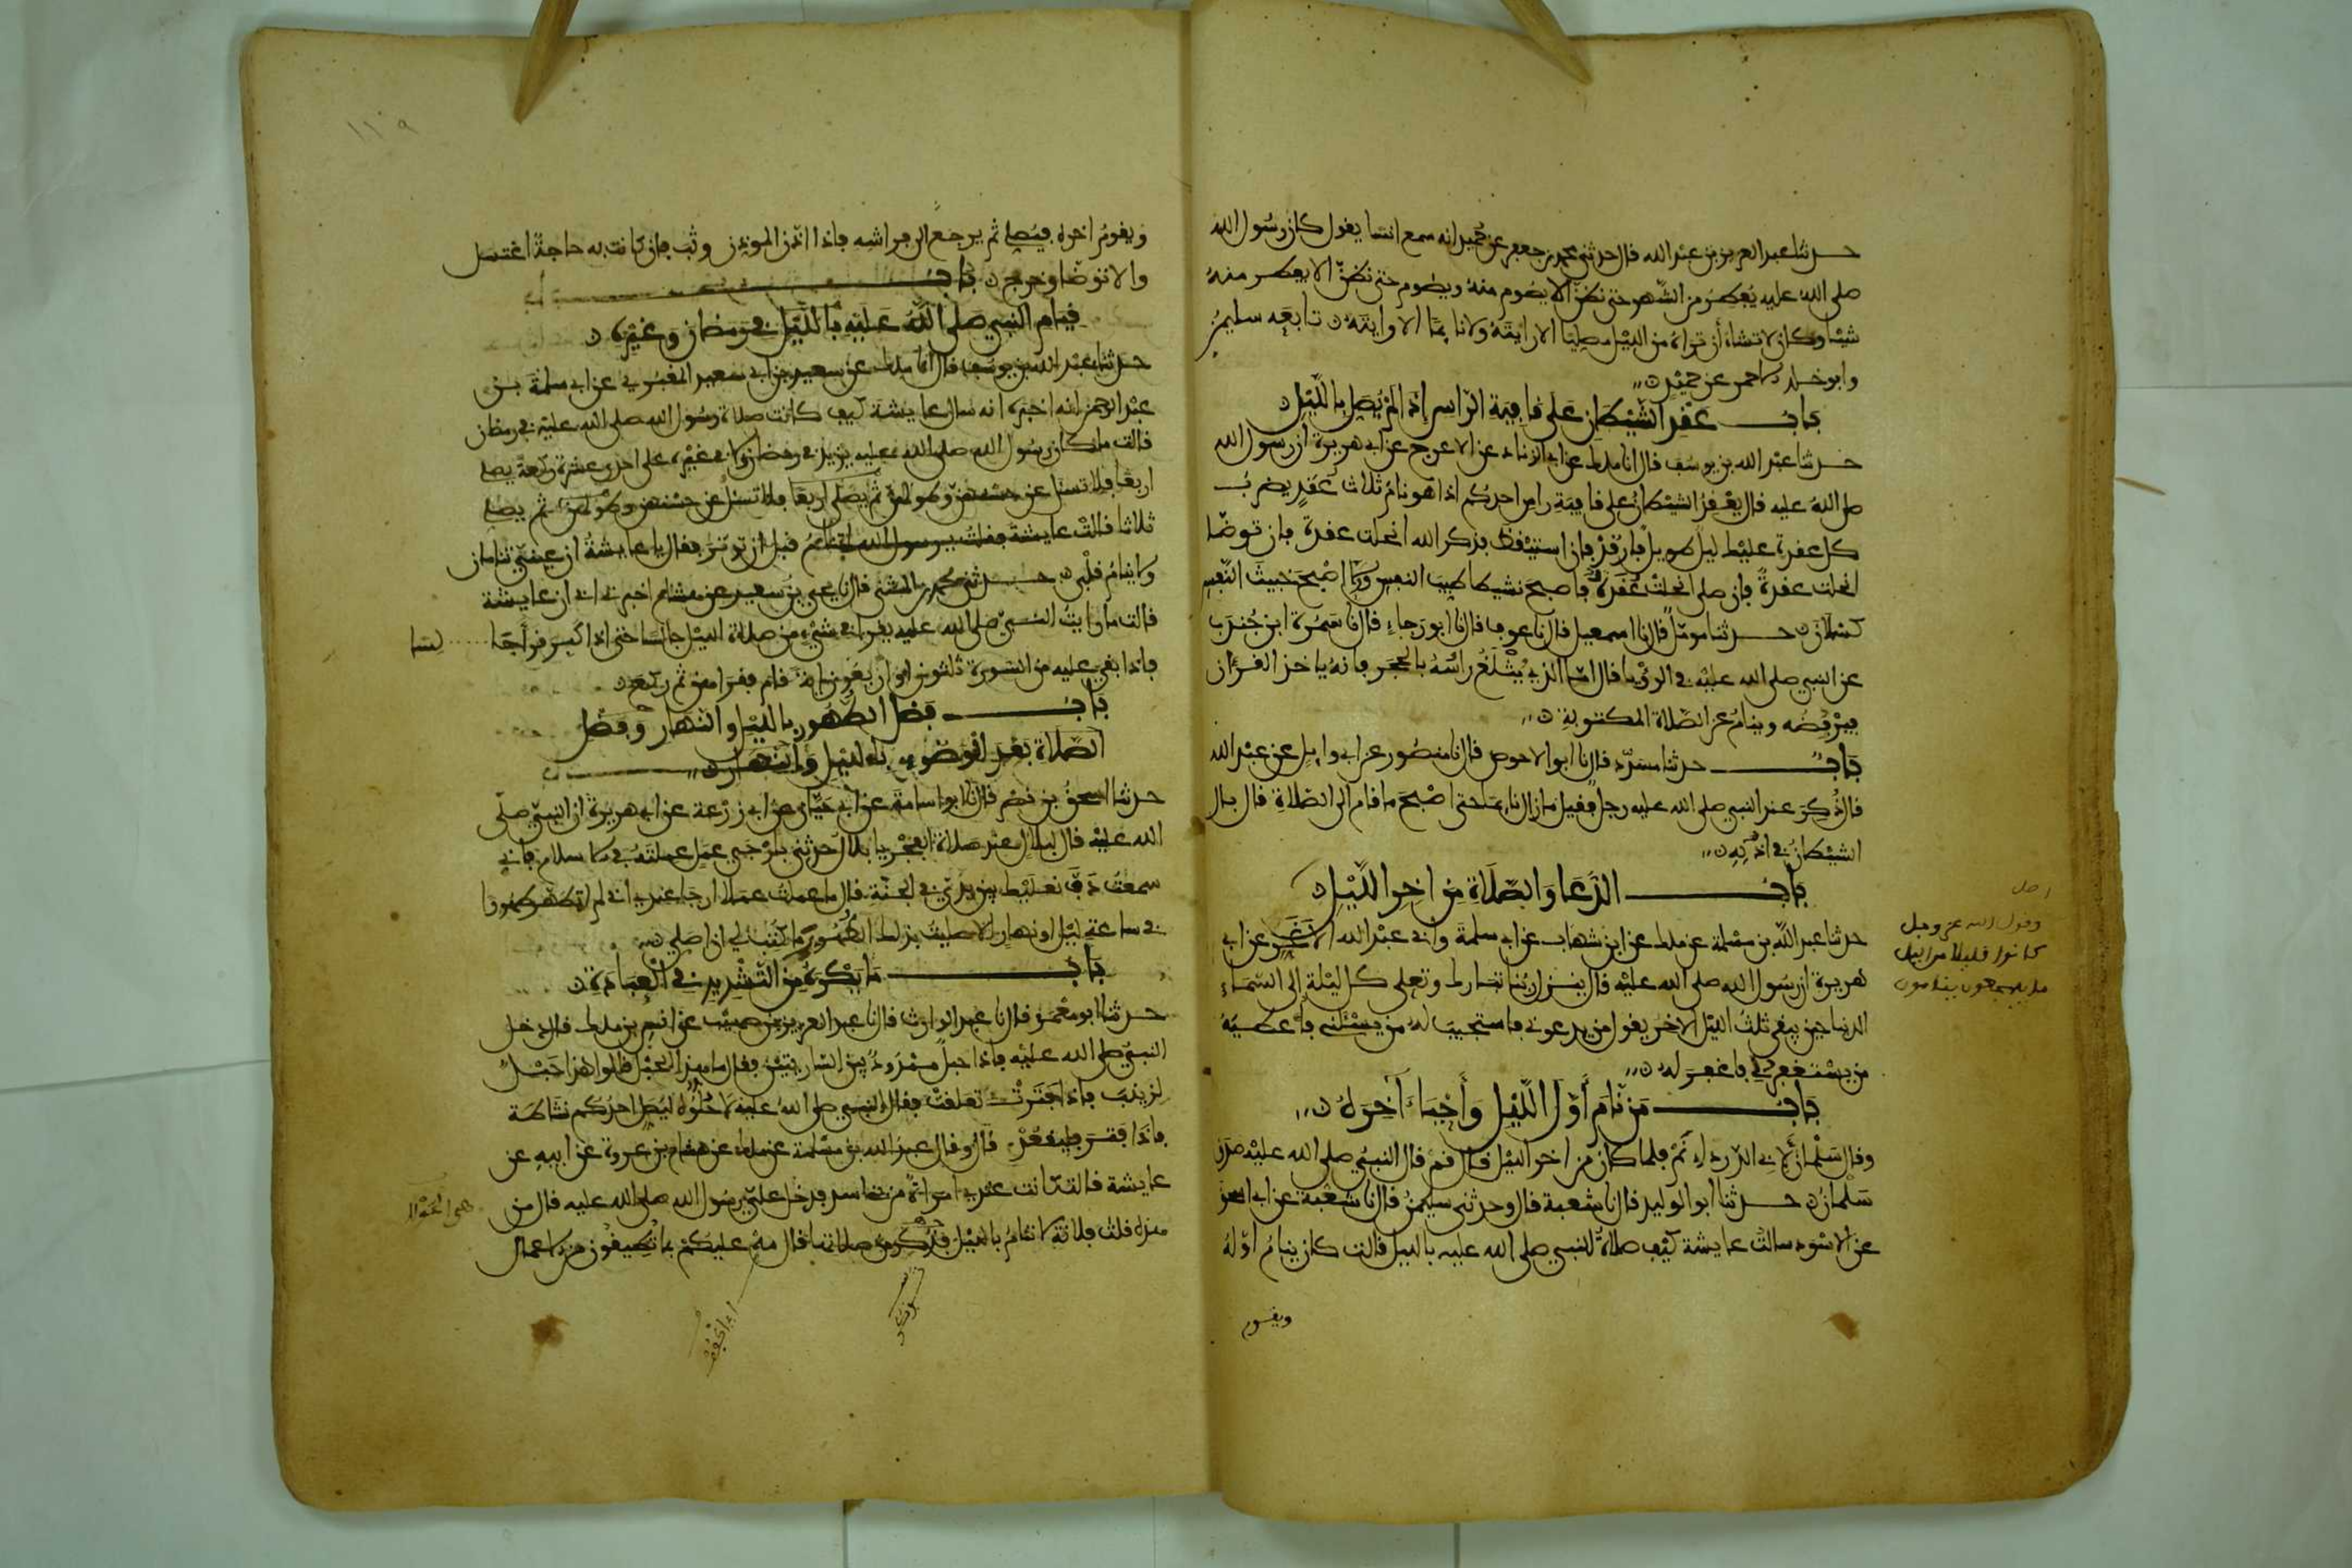 حدثنا عبد العزيز بن عبد الله قال حدثني محمد بن جعفر عن حميد انه سمع انسا يقول كان رسول الله
صلى الله عليه يفطر من الشهر حتى نظن الا يصوم منه ويصوم حتى نظن الا يفطر منه
شيئا وكان لا تشاء أن تراه من الليل مصليا الا رايته ولا نايما الا رايته تابعه سليمن
وابو خلد الاحمر عن حميد
باب عقد الشيطان على قافية الراس إذا لم يصل بالليل
حدثنا عبد الله بن يوسف قال انا ملك عن ابي الزناد عن الاعرج عن ابي هريرة أن رسول الله
صلى الله عليه قال يعقد الشيطان على قافية راس احدكم اذا هو نام ثلاث عقد يضرب
كل عقدة عليك ليل طويل فارقد فان استيقظ فذكر الله انحلت عقدة فان توضا
انحلت عقدة فان صلى انحلت عقدة فاصبح نشيطا طيب النفس والا اصبح خبيث النفس
كسلان حدثنا مومل قال نا اسمعيل قال نا عوف قال نا ابو رجاء قال نا سمرة ابن جندب
عن النبي صلى الله عليه في الرؤيا قال اما الذي يثلغ راسه بالحجر فانه ياخذ القرءان
فيرفضه وينام عن الصلاة المكتوبة
باب حدثنا مسدد قال نا ابو الاحوص قال نا منصور عن ابي وايل عن عبد الله
قال ذكر عند النبي صلى الله عليه رجل فقيل ما زال نايما حتى اصبح ما قام الى الصلاة قال بال
الشيطان في اذنه
باب الدعا والصلاة من اخر الليل
اصل
وقول الله عز وجل
كانوا قليلا من الليل
ما يهجعون ينامون
حدثنا عبد الله بن مسلمة عن ملك عن ابن شهاب عن ابي سلمة وابي عبد الله الاغر عن ابي
هريرة ان رسول الله صلى الله عليه قال ينزل ربنا تبارك وتعلى كل ليلة إلى السماء
الدنيا حين يبقى ثلث الليل الاخر يقول من يدعوني فاستجيب له من يسئلني فأعطيه
من يستغفرني فاغفر له
باب من نام أول الليل وأحياء آخره
وقال سلمان لأبي الدرداء نم فلما كان من اخر الليل قال قم قال النبي صلى الله عليه صدق
سلمان حدثنا ابو الوليد قال نا شعبة قال وحدثني سليمن قال نا شعبة عن ابي اسحق
عن الاسود سالت عايشة كيف صلاة النبي صلى الله عليه بالليل قالت كان ينام اوله
ويقوم
١١٩
ويقوم اخره فيصلي ثم يرجع الى فراشه فاذا اذن الموذن وثب فان كانت به حاجة اغتسل
والا توضا وخرج باب
قيام النبي صلى الله عليه بالليل في رمضان وغيره
حدثنا عبد الله بن يوسف قال انا ملك عن سعيد بن ابي سعيد المقبوري عن ابي سلمة بن
عبد الرحمن انه اخبره انه سال عايشة كيف كانت صلاة رسول الله صلى الله عليه في رمضان
قالت ما كان رسول الله صلى الله عليه يزيد في رمضان ولا في غيره على احدى عشرة ركعة يصلي
اربعا فلا تسئل عن حسنهن وطولهن ثم يصلي اربعا فلا تسئل عن حسنهن وطولهن ثم يصلي
ثلاثا قالت عايشة فقلت يرسول الله اتنام قبل ان توتر فقال يا عايشة ان عيني تنامان
ولا ينام قلبي حدثني محمد بن المثنى قال نا يحيى بن سعيد عن هشام اخبرني ابي ان عايشة
قالت ما رايت النبي صلى الله عليه يقرا في شيء من صلاة الليل جالسا حتى اذا كبر قرأ جالسا
فاذا بقي عليه من السورة ثلثون او اربعون اية قام فقراهن ثم ركع
باب فضل الطهور بالليل والنهار وفضل
الصلاة بعد الوضوء بالليل والنهار
حدثنا اسحق بن نصر قال نا ابو اسامة عن ابي حيان عن ابي زرعة عن ابي هريرة ان النبي صلى
الله عليه قال لبلال عند صلاة الفجر يا بلال حدثني بارجى عمل عملته في الاسلام فاني
سمعت دف نعليك بين يدي في الجنة قال ما عملت عملا ارجا عندي اني لم اتطهر طهورا
في ساعة ليل او نهار الا صليت بذلك الطهور ما كتب لي ان اصلي
باب ما يكره من التشديد في العبادة
حدثنا ابو معمر قال نا عبد الوارث قال نا عبد العزيز بن صهيب عن انس بن ملك قال دخل
النبي صلى الله عليه فاذا حبل ممدود بين الساريتين فقال ما هذا الحبل قالوا هذا حبل
لزينب فاذا فترت تعلقت فقال النبي صلى الله عليه لا حلوه ليصل احدكم نشاطه
فاذا فتر فليقعد قال وقال عبد الله بن مسلمة عن ملك عن هشام بن عروة عن ابيه عن
عايشة قالت كانت عندي امراة من بني اسد فدخل علي رسول الله صلى الله عليه قال من
هذه قلت فلانة لا تنام بالليل فذكر من صلاتها قال مه عليكم ما تطيقون من الاعمال
هي الحولا